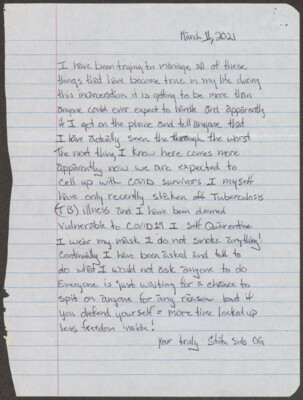 March 11, 2021
I have been trying to manage all of these
things that have become true in my life during
this incarceration it is getting to be more than
anyone could ever expect to handle and apparently
if I get on the phone and tell anyone that
I have actually seen the through the worst
The next thing I know here comes more
apparently now we are expected to
cell up with COVID survivors I myself
have only recently stricken off Tuberculosis
(TB) illness and I have been deemed
Vulnerable to COVID19 I Self Quarentine
I wear my mask I do not smoke anything!
Continually I have been asked and told to
do what I would not ask anyone to do
Everyone is just waiting for a chance to
spit on anyone for any reason but if
you defend yourself = more time locked up
less freedom inside!
Your truly OG